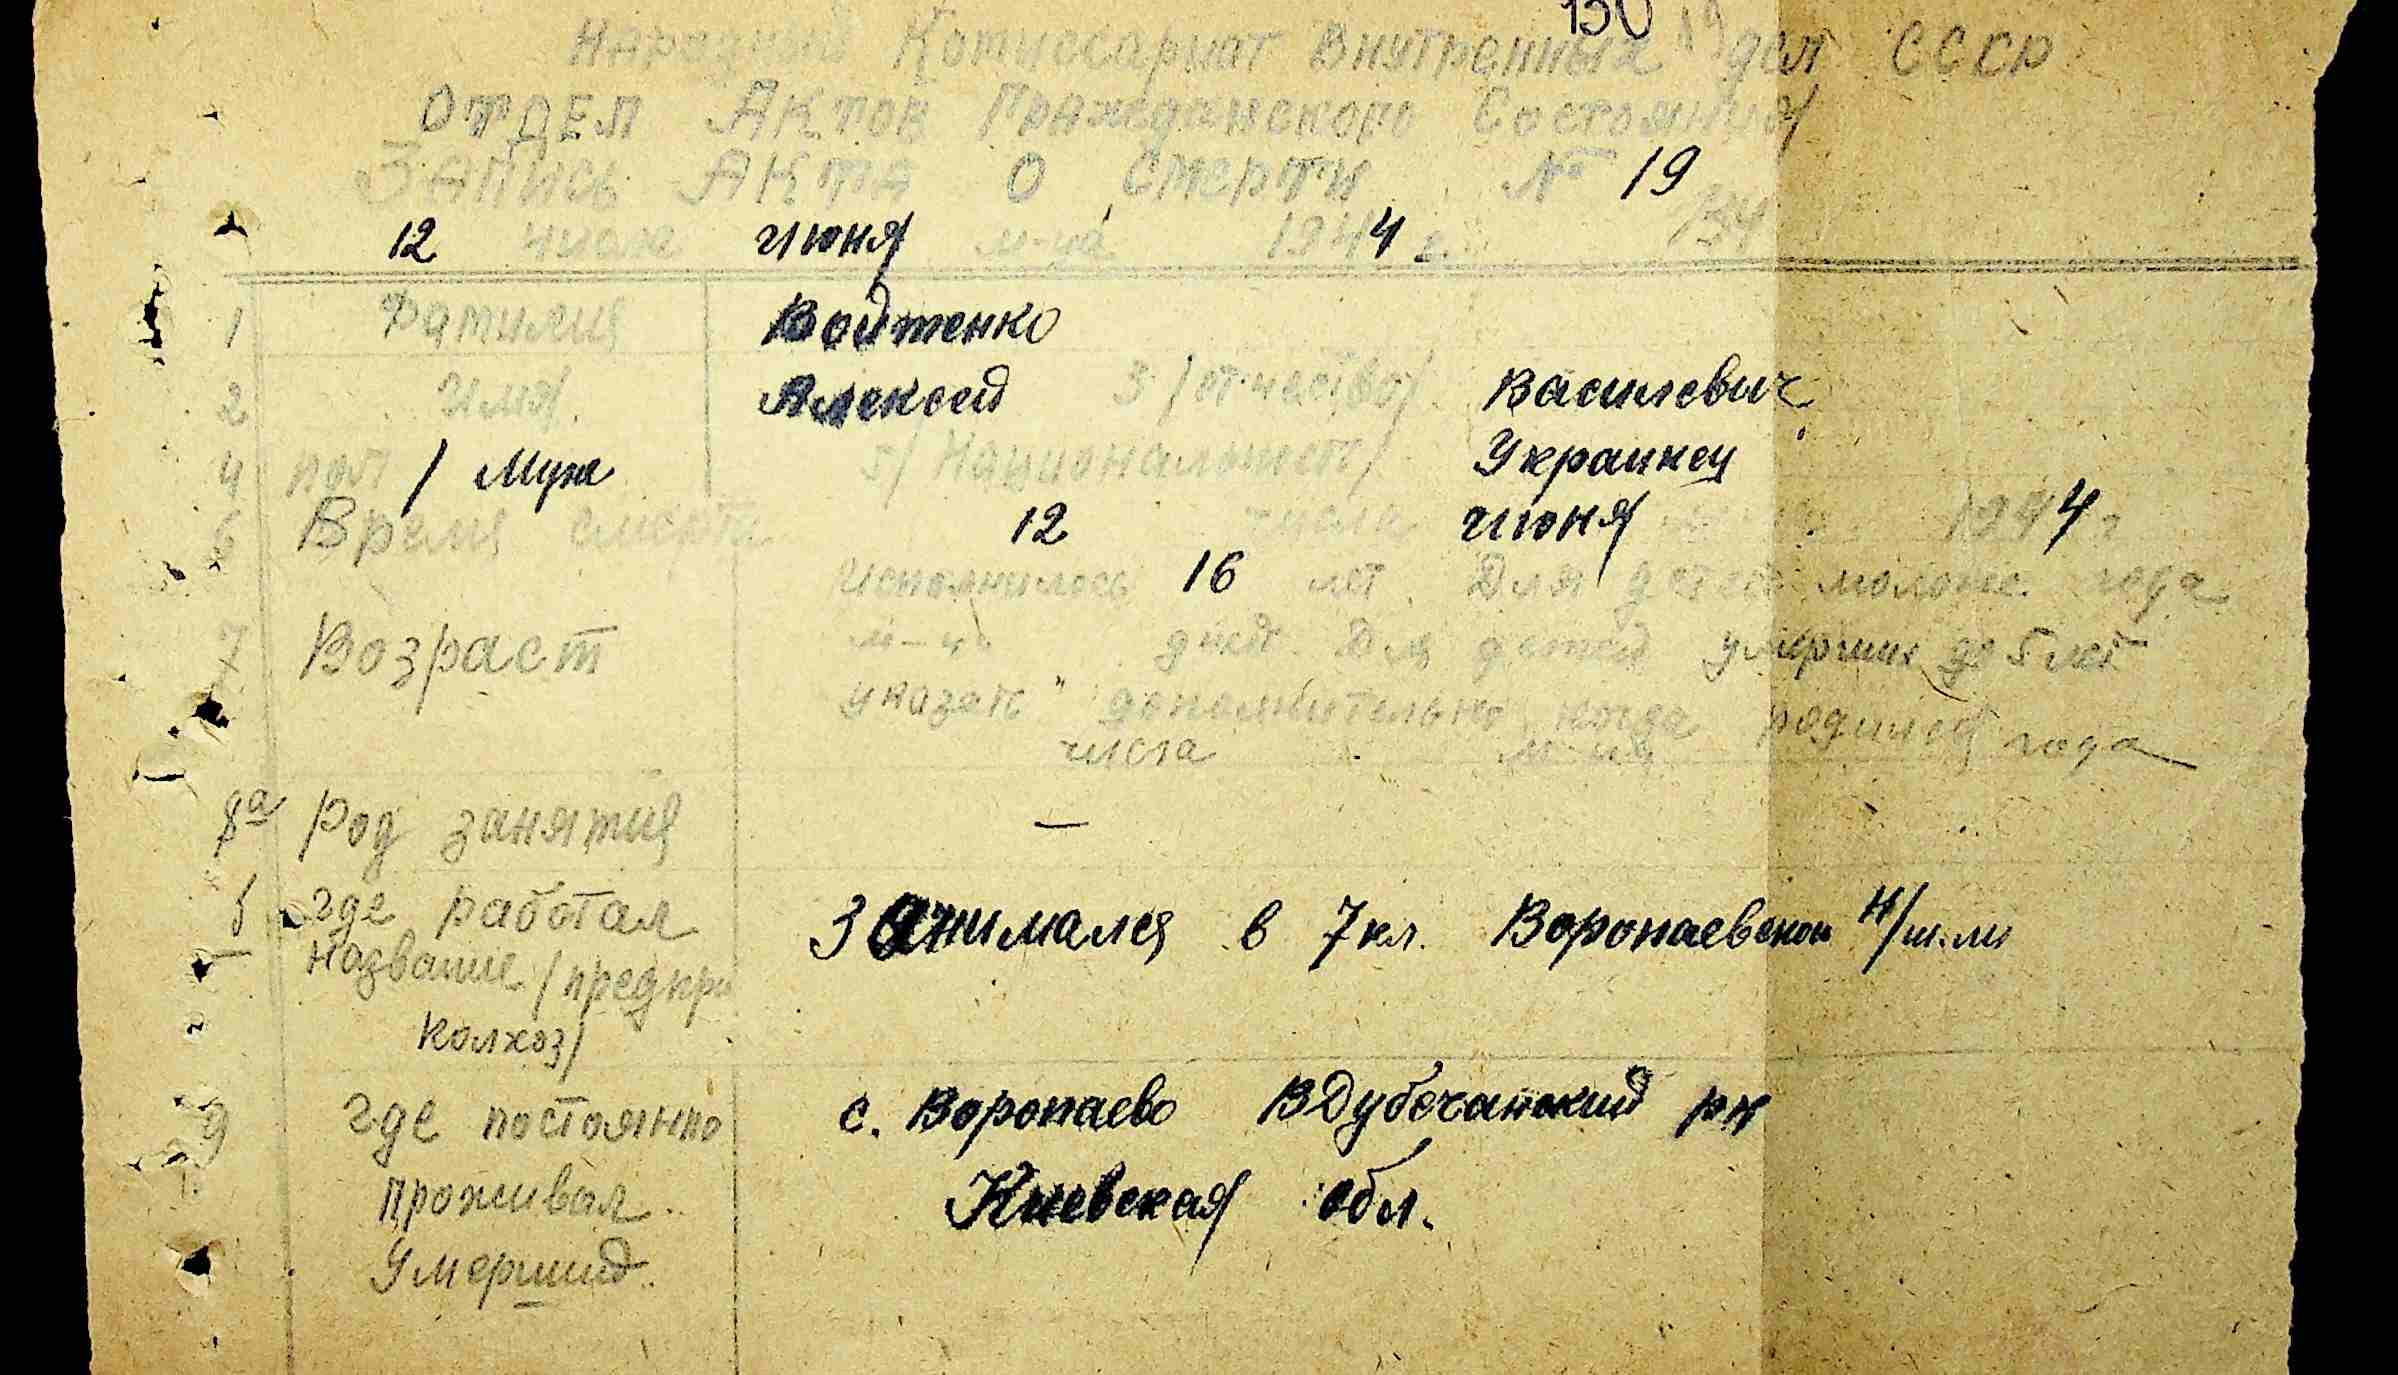 130
Народный Комиссариат Внутренных дел СССР
Отдел Актов Гражданского Состояния
Запись Акта о смерти № 19
12 числа июня м-ца 1944 г.
1 Фамилия Войтенко
2 Имя Алексей 3 /отчество/ Василевич
4 пол / Муж 5/ Национальность/ Украинец
6 Время смерти 12 числа июня 1944 г
Исполнилось 16 лет. Для детей моложе года
7 Возраст м-ц. дней. Для детей умерших до 5 лет
указать дополнительно когда родился
числа м-ца года
8а Род занятия —
б где работал Занимался в 7 кл. Воропаевской н/шк.
название /предпри
колхоз/
9 где постоянно с. Воропаево ВДубечанский рн
проживал Киевская обл.
Умерший